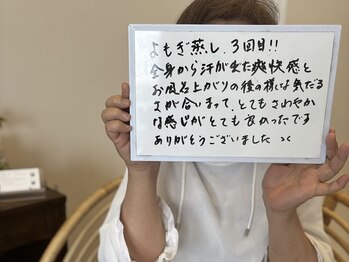 よもぎ蒸し、3回目!!
全身から汗が出た爽快感と
お風呂上がりの後の様な気だる
さが合いまって、とてもさわやか
な感じがとても良かったです
ありがとうございました